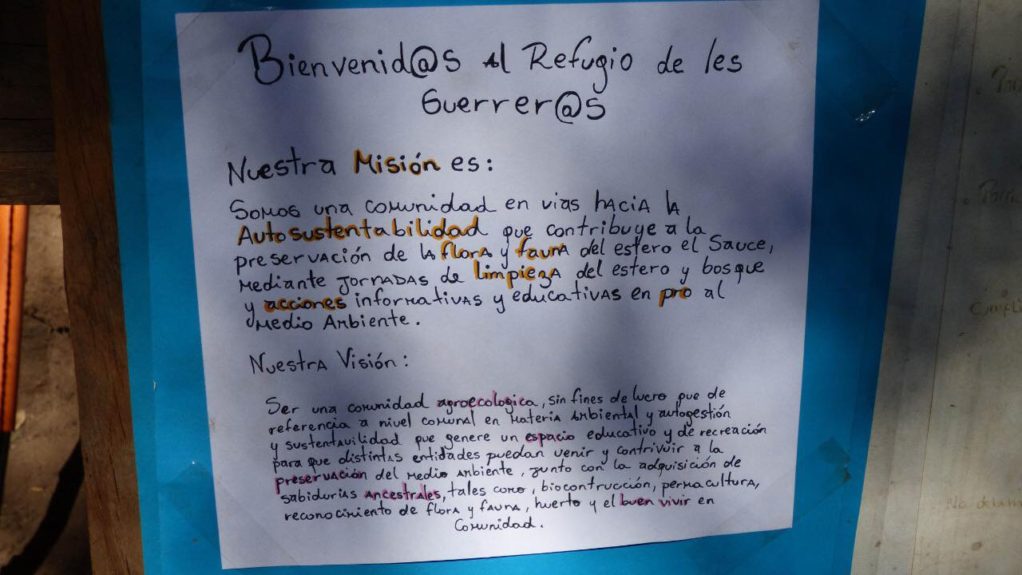 Bienvenid@s Al Refugio de les
Guerrer@s
Nuestra Misión es:
Somos una comunidad en vias hacia la
Autosustentabilidad que contribuye a la
preservación de la flora y fauna del estero el Sauce,
mediante jornadas de limpieza del estero y bosque
y acciones informativas y educativas en pro al
Medio Ambiente.
Nuestra Visión:
Ser una comunidad agroecologica, sin fines de lucro que de
referencia a nivel comunal en materia Ambiental y autogestión
y sustentavilidad que genere un espacio educativo y de recreación
para que distintas entidades puedan venir y contrivuir a la
preservación del Medio Ambiente, junto con la adquisición de
sabidurias Ancestrales, tales como, bioconstrucción, permacultura,
reconocimiento de flora y fauna, huerto y el buen vivir en
Comunidad.